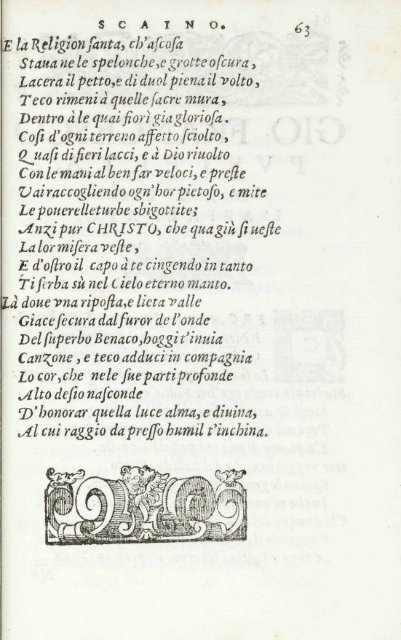 SCAINO. 63
E la Religion ſanta, ch'aſcoſa
Staua ne le spelonche, e grotte oſcura,
Lacera il petto, e di duol piena il volto,
Teco rimeni à quelle ſacre mura,
Dentro à le quai fiorì gia glorioſa.
Coſi d'ogni terreno affetto ſciolto,
Quaſi di fieri lacci, e à Dio riuolto
Con le mani al ben far veloci, e preſte
Vai raccogliendo ogn'hor pietoſo, e mite
Le pouerelle turbe sbigottite;
Anzi pur CHRISTO, che qua giù ſi ueſte
La lor miſera veſte,
E d'oſtro il capo à te cingendo in tanto
Ti ſerba sù nel Cielo eterno manto.
Là doue vna ripoſta, e lieta valle
Giace ſecura dal furor de l'onde
Del ſuperbo Benaco, hoggi t'inuia
Canzone, e teco adduci in compagnia
Lo cor, che ne le ſue parti profonde
Alto deſio naſconde
D'honorar quella luce alma, e diuina,
Al cui raggio da preſſo humil t'inchina.